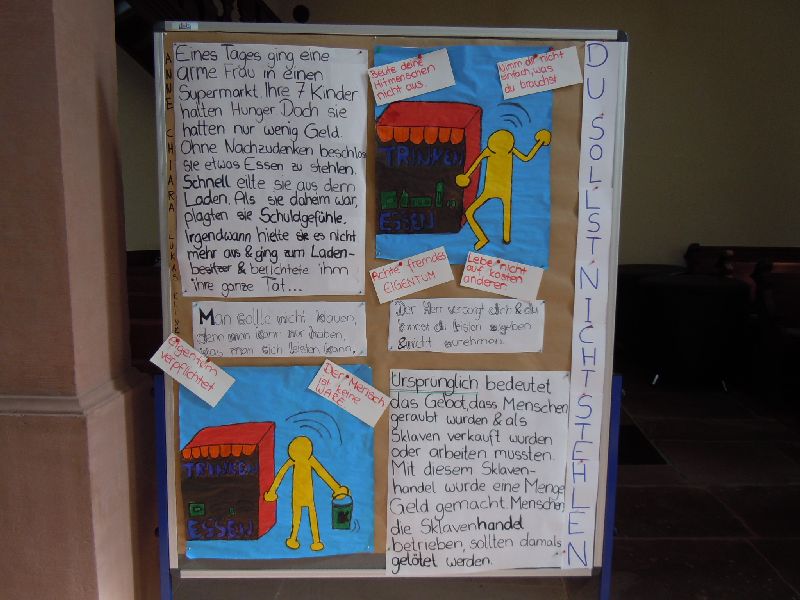 Eines Tages ging eine
arme Frau in einen
Supermarkt. Ihre 7 Kinder
hatten Hunger. Doch sie
hatten nur wenig Geld.
Ohne Nachzudenken beschloss
sie etwas Essen zu stehlen.
Schnell eilte sie aus dem
Laden. Als sie daheim war,
plagten sie Schuldgefühle.
Irgendwann hielte sie es nicht
mehr aus & ging zum Laden-
besitzer & berichtete ihm
ihre ganze Tat...
Beute deine
Mitmenschen
nicht aus.
Nimm dir nicht
einfach, was
du brauchst
TRINKEN
ESSEN
Achte fremdes
EIGENTUM
Lebe nicht
auf kosten
anderer.
DU SOLLST NICHT STEHLEN
ANNE CHIARA LUKAS
Man sollte nicht klauen,
denn man kann nur haben,
was man sich leisten kann.
Der Herr versorgt dich & du
zu geben
& nicht zu nehmen.
Eigentum
verpflichtet
Der Mensch
ist keine
WARE
TRINKEN
ESSEN
Ursprünglich bedeutet
das Gebot, dass Menschen
geraubt wurden & als
Sklaven verkauft wurden
oder arbeiten mussten.
Mit diesem Sklaven-
handel wurde eine Menge
Geld gemacht. Menschen
die Sklavenhandel
betrieben, sollten damals
getötet werden.